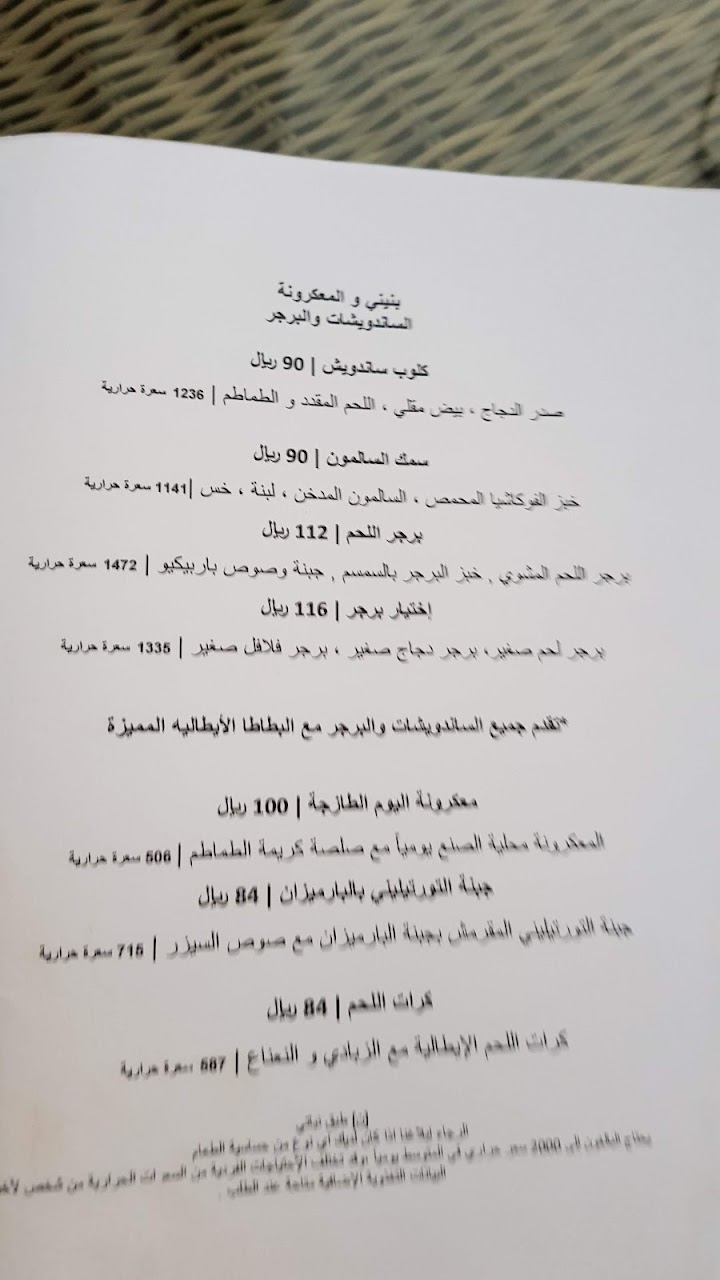 بنيني و المعكرونة
الساندويشات والبرجر
كلوب ساندويش | 90 ريال
صدر الدجاج ، بيض مقلي ، اللحم المقدد و الطماطم | 1236 سعرة حرارية
سمك السالمون | 90 ريال
خبز الفوكاشيا المحمص ، السالمون المدخن ، لبنة ، خس |1141 سعرة حرارية
برجر اللحم | 112 ريال
برجر اللحم المشوي , خبز البرجر بالسمسم , جبنة وصوص باربيكيو | 1472 سعرة حرارية
إختيار برجر | 116 ريال
برجر لحم صغير، برجر دجاج صغير ، برجر فلافل صغير | 1335 سعرة حرارية
*تقدم جميع الساندويشات والبرجر مع البطاطا الأيطاليه المميزة
معكرونة اليوم الطازجة | 100 ريال
المعكرونة محلية الصنع يومياً مع صلصة كريمة الطماطم | 506 سعرة حرارية
جبنة التورتيليني بالبارميزان | 84 ريال
جبنة التورتيليني المقرمش بجبنة البارميزان مع صوص السيزر | 715 سعرة حرارية
كرات اللحم | 84 ريال
كرات اللحم الإيطالية مع الزبادي و النعناع | 587 سعرة حرارية
(ن) طبق نباتي
الرجاء إبلاغنا اذا كان لديك أي نوع من حساسية الطعام
يحتاج البالغون الى 2000 سعر حراري في المتوسط يومياً وقد تختلف الإحتياجات الفردية من السعرات الحرارية من شخص لآخر
البيانات التغذوية الإضافية متاحة عند الطلب .